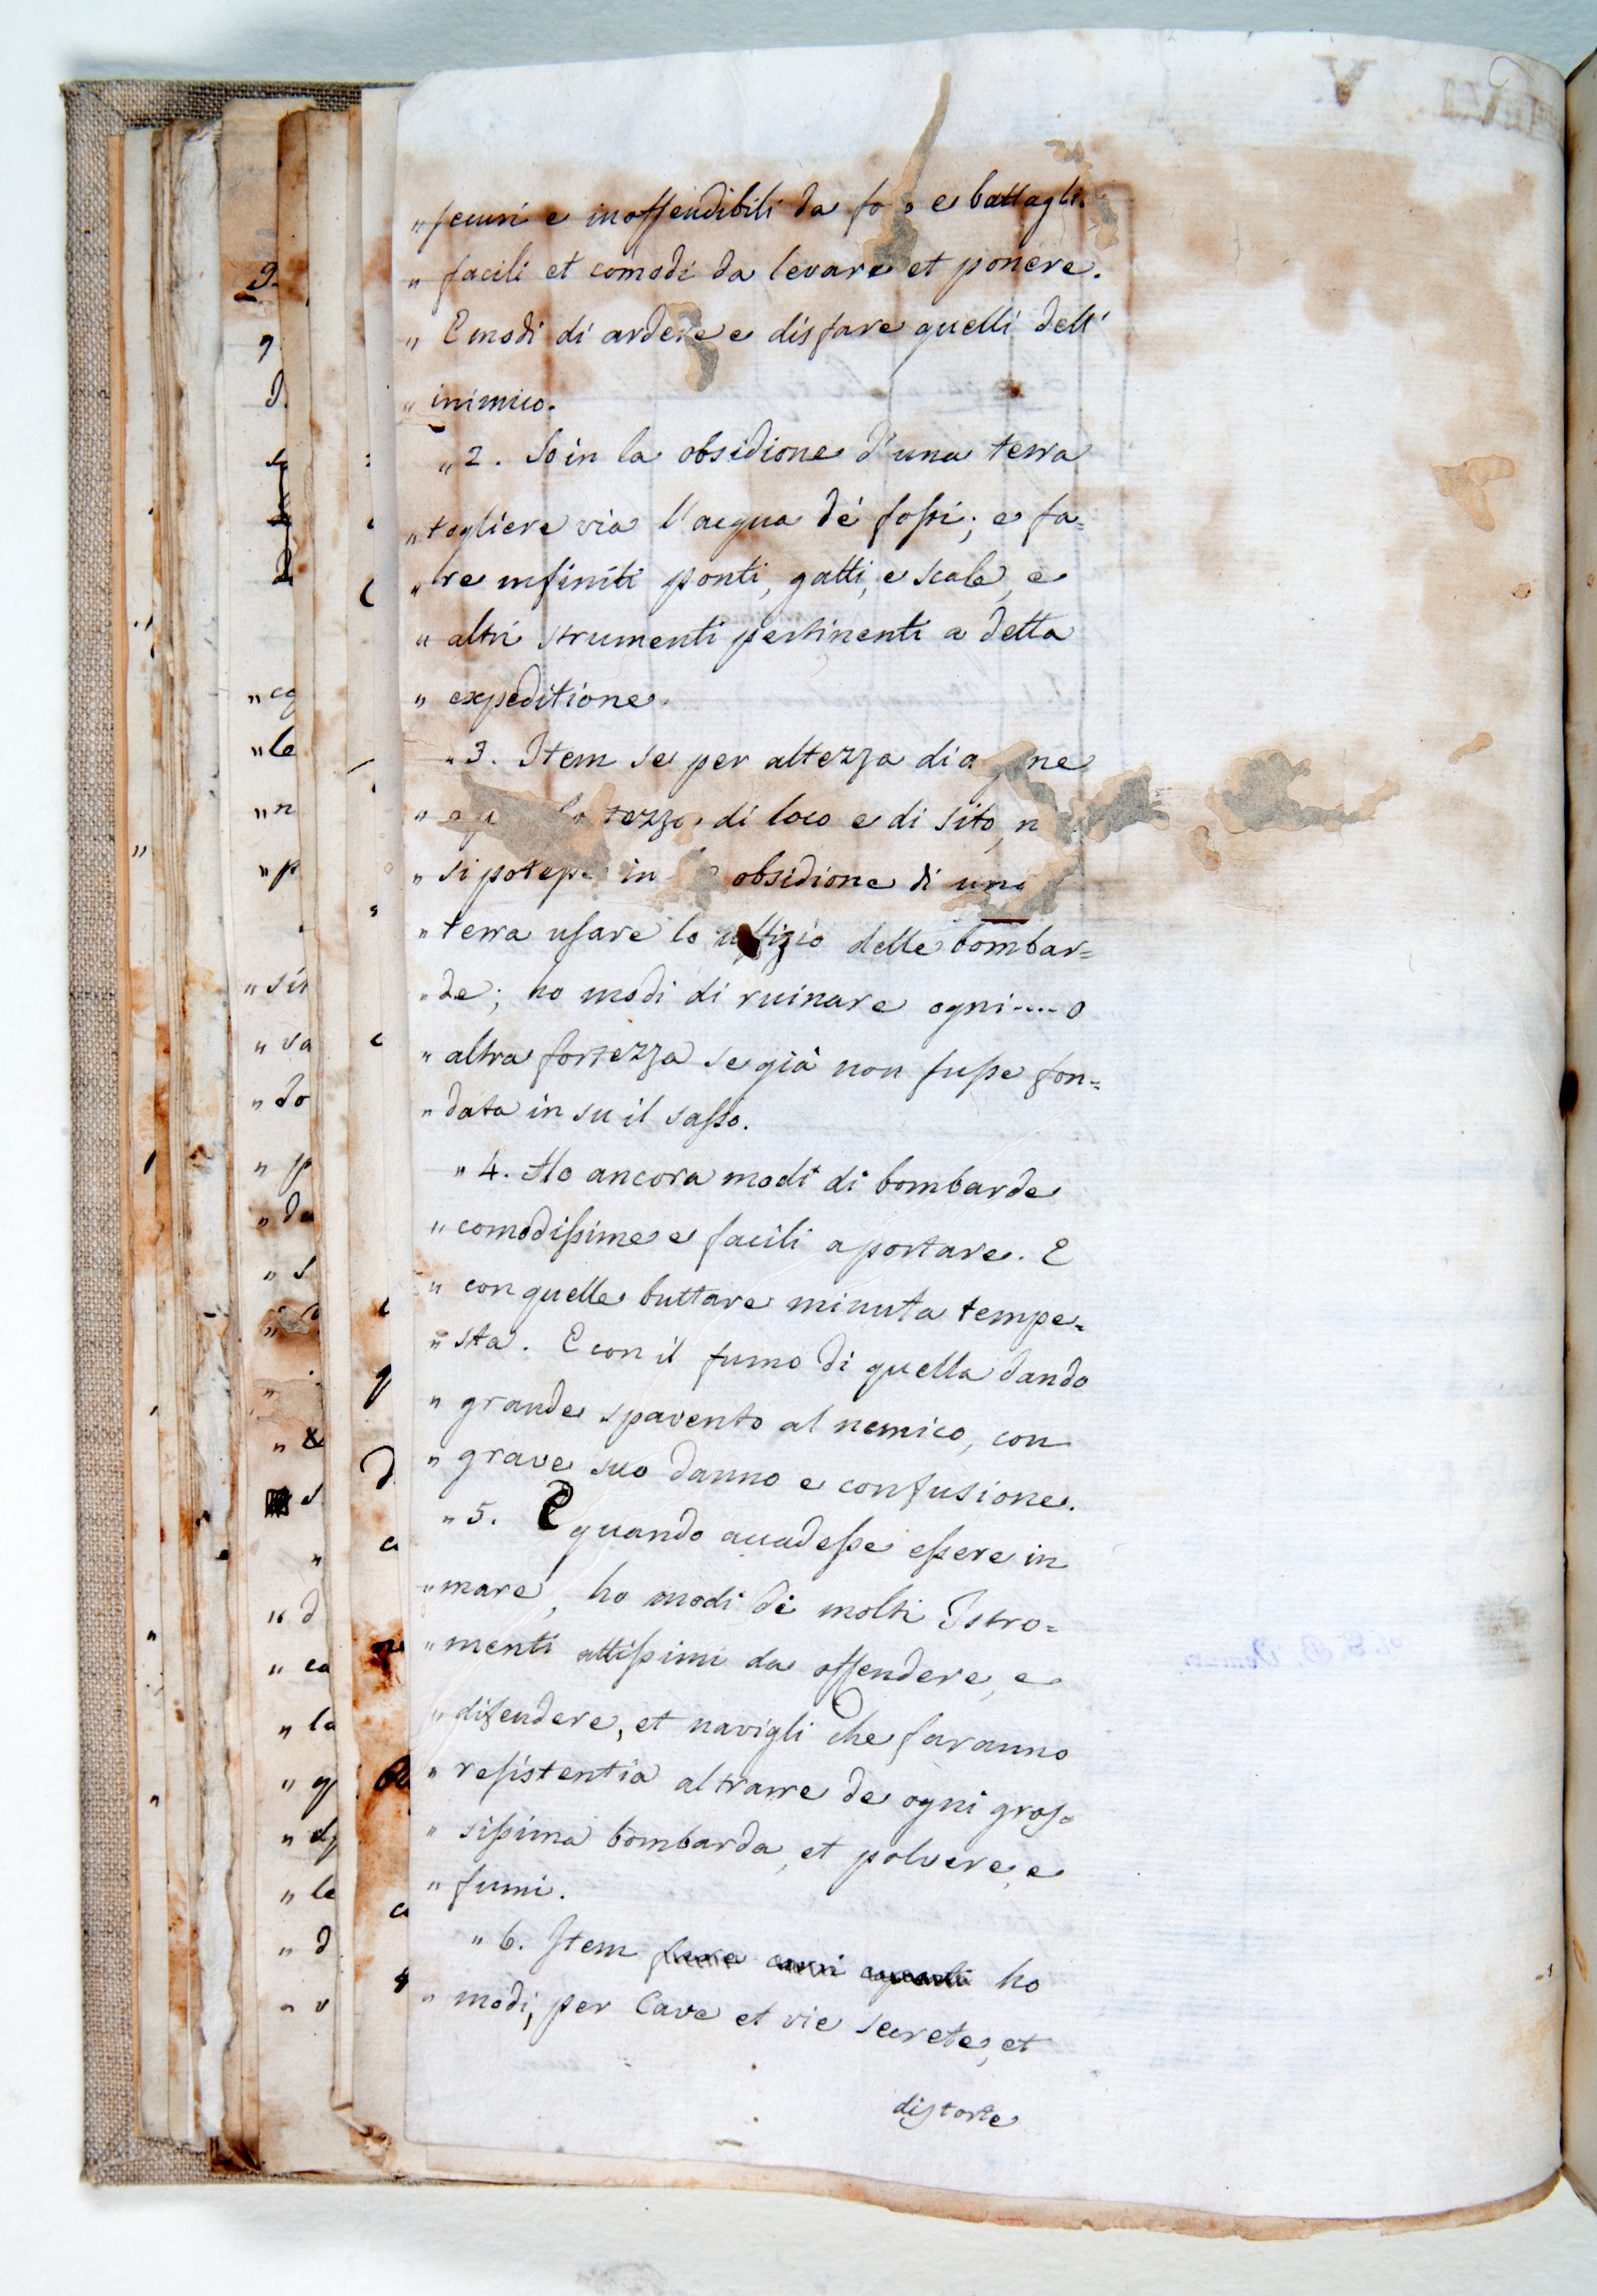 „ securi e inoffendibili da fo o e battagli
„ facili et comodi da levare et ponere.
„ E modi di ardere e disfare quelli dell'
„ inimico.
„ 2. So in la obsidione d'una terra
„ togliere via l'acqua de' fossi; e fa=
„ re infiniti ponti, gatti, e scale, e
„ altri strumenti pertinenti a detta
„ expeditione.
„ 3. Item se per altezza di a ne
„ o p tezza di loco e di sito, n
„ si potesse in obsidione di una
„ terra usare lo uffizio delle bombar=
„ de; ho modi di ruinare ogni .... o
„ altra fortezza se già non fusse fon=
„ data in su il sasso.
„ 4. Ho ancora modi di bombarde
„ comodissime e facili a portare. E
„ con quelle buttare minuta tempe=
„ sta. E con il fumo di quella dando
„ grande spavento al nemico, con
„ grave suo danno e confusione.
„ 5. E quando accadesse essere in
„ mare, ho modi de molti Istro=
„ menti attissimi da offendere, e
„ difendere, et navigli che faranno
„ resistentia al trarre de ogni gros=
„ sissima bombarda, et polvere, e
„ fumi.
„ 6. Item ho
„ modi, per Cave et vie secrete, et
distorte